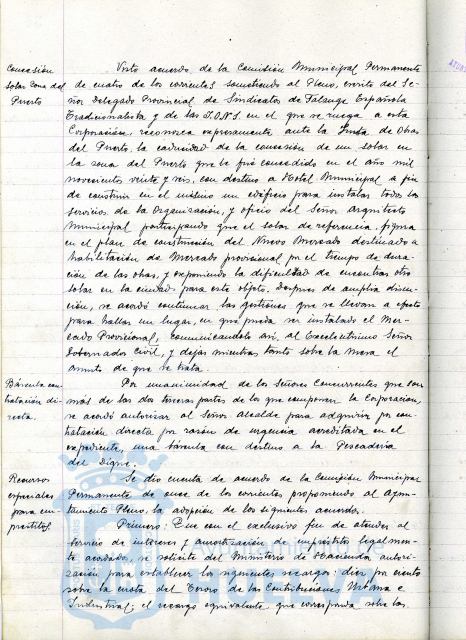 Concesión solar Zona del Puerto
Visto acuerdo de la Comisión Municipal Permanente
de cuatro de los corrientes sometiendo al Pleno, escrito del Se-
ñor Delegado Provincial de Sindicatos de Falange Española
Tradicionalista y de las J.O.N.S. en el que se ruega a esta
Corporación, reconozca expresamente ante la Junta de Obras
del Puerto, la caducidad de la concesión de un solar en
la zona del Puerto que le fué concedido en el año mil
novecientos veinte y seis, con destino a Hotel Municipal a fin
de construir en el mismo un edificio para instalar todos los
servicios de la Organización, y oficio del Señor Arquitecto
Municipal participando que el solar de referencia, figura
en el plan de construcción del Nuevo Mercado destinado a
habilitación de Mercado provisional por el tiempo de dura-
ción de las obras, y exponiendo la dificultad de encontrar otro
solar en la ciudad para este objeto, después de amplia discu-
sión, se acordó continuar las gestiones que se llevan a efecto
para hallar un lugar, en que pueda ser instalado el Mer-
cado Provisional, comunicandolo así, al Excelentísimo Señor
Gobernador Civil, y dejar mientras tanto sobre la Mesa el
asunto de que se trata.
Báscula con-
tratación di-
recta.
Por unanimidad de los Señores Concurrentes que son
más de las dos terceras partes de los que componen la Corporación,
se acordó autorizar al Señor Alcalde para adquirir por con-
tratación directa por razón de urgencia acreditada en el
expediente, una báscula con destino a la Pescadería
del Dique.
Recursos
especiales
para em-
préstitos
Se dio cuenta de acuerdo de la Comisión Municipal
Permanente de once de los corrientes proponiendo al Ayun-
tamiento Pleno, la adopción de los siguientes acuerdos.
Primero: Que con el exclusivo fin de atender al
servicio de intereses y amortización de empréstitos legalmen-
te acordado, se solicite del Ministerio de Hacienda autori-
zación para establecer los siguientes recargos: diez por ciento
sobre la cuota del Tesoro de las Contribuciones Urbana e
Industrial; el recargo equivalente, que corresponda sobre las